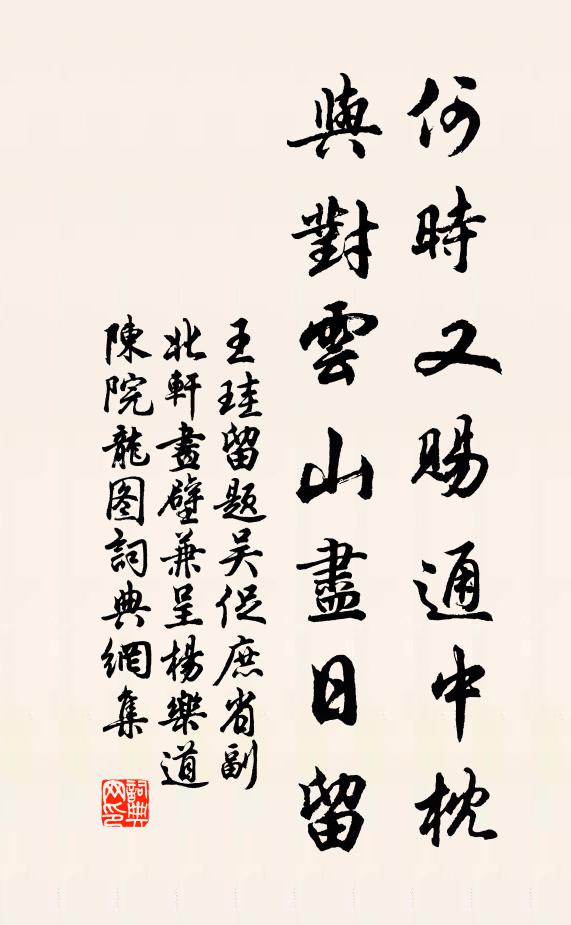 何時又賜通中枕
與對雲山盡日留
王珪留題吴促庶省副
北軒畫壁兼呈楊樂道
陳院龍图詞典網集
詞典
网印